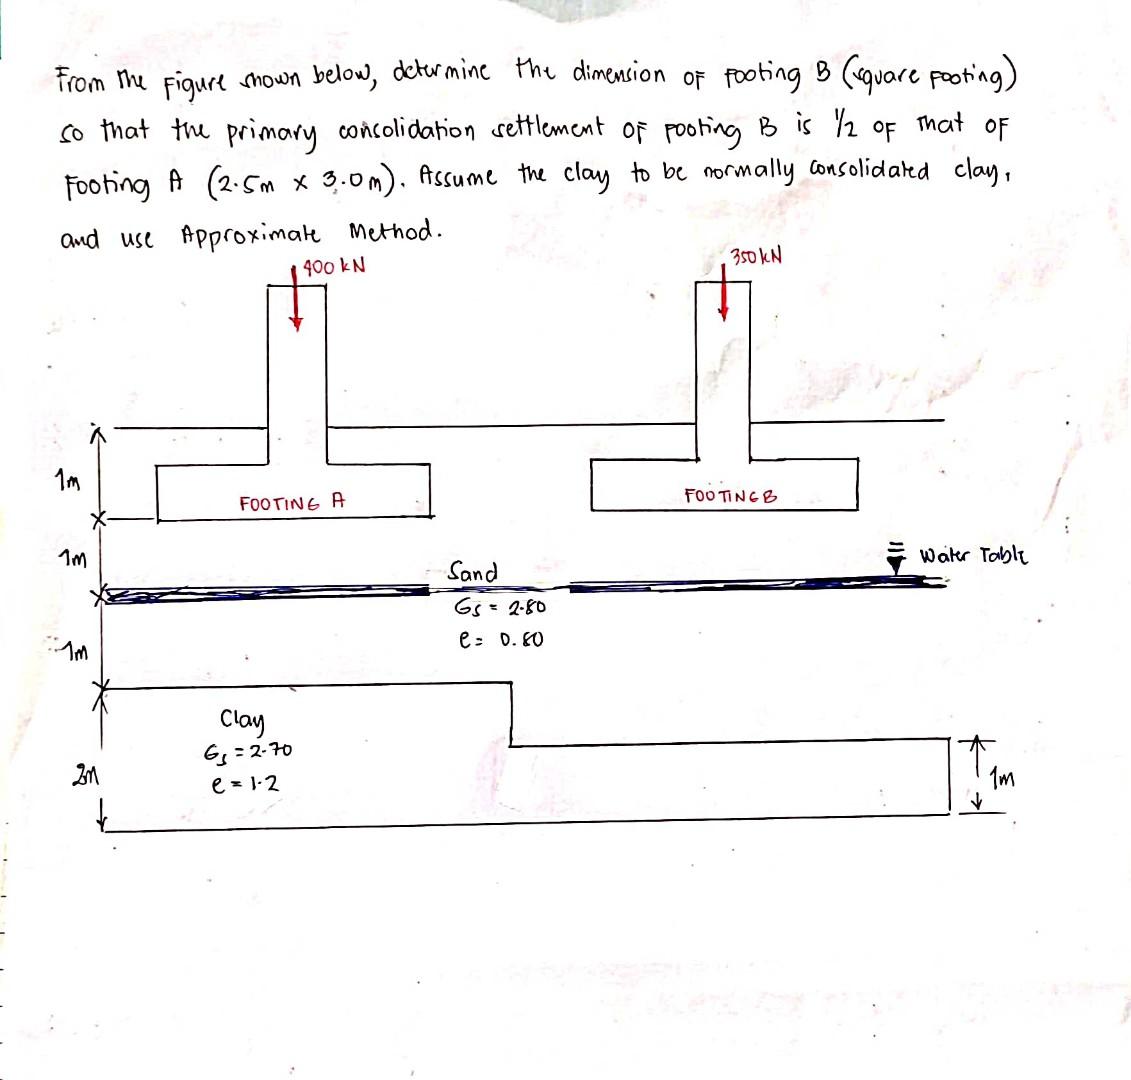 From the Figure shown below, determine the dimension of footing B (square footing)
so that the primary consolidation settlement of footing B is 1/2 of that of
Footing A (2.5m x 3.0m). Assume the clay to be normally consolidated clay,
and use Approximate Method.
400 kN
350 kN
1m
FOOTING A
FOOTING B
1m
Sand
Water Table
Gs = 2.80
e = 0.80
1m
Clay
Gs = 2.70
e = 1.2
2m
1m